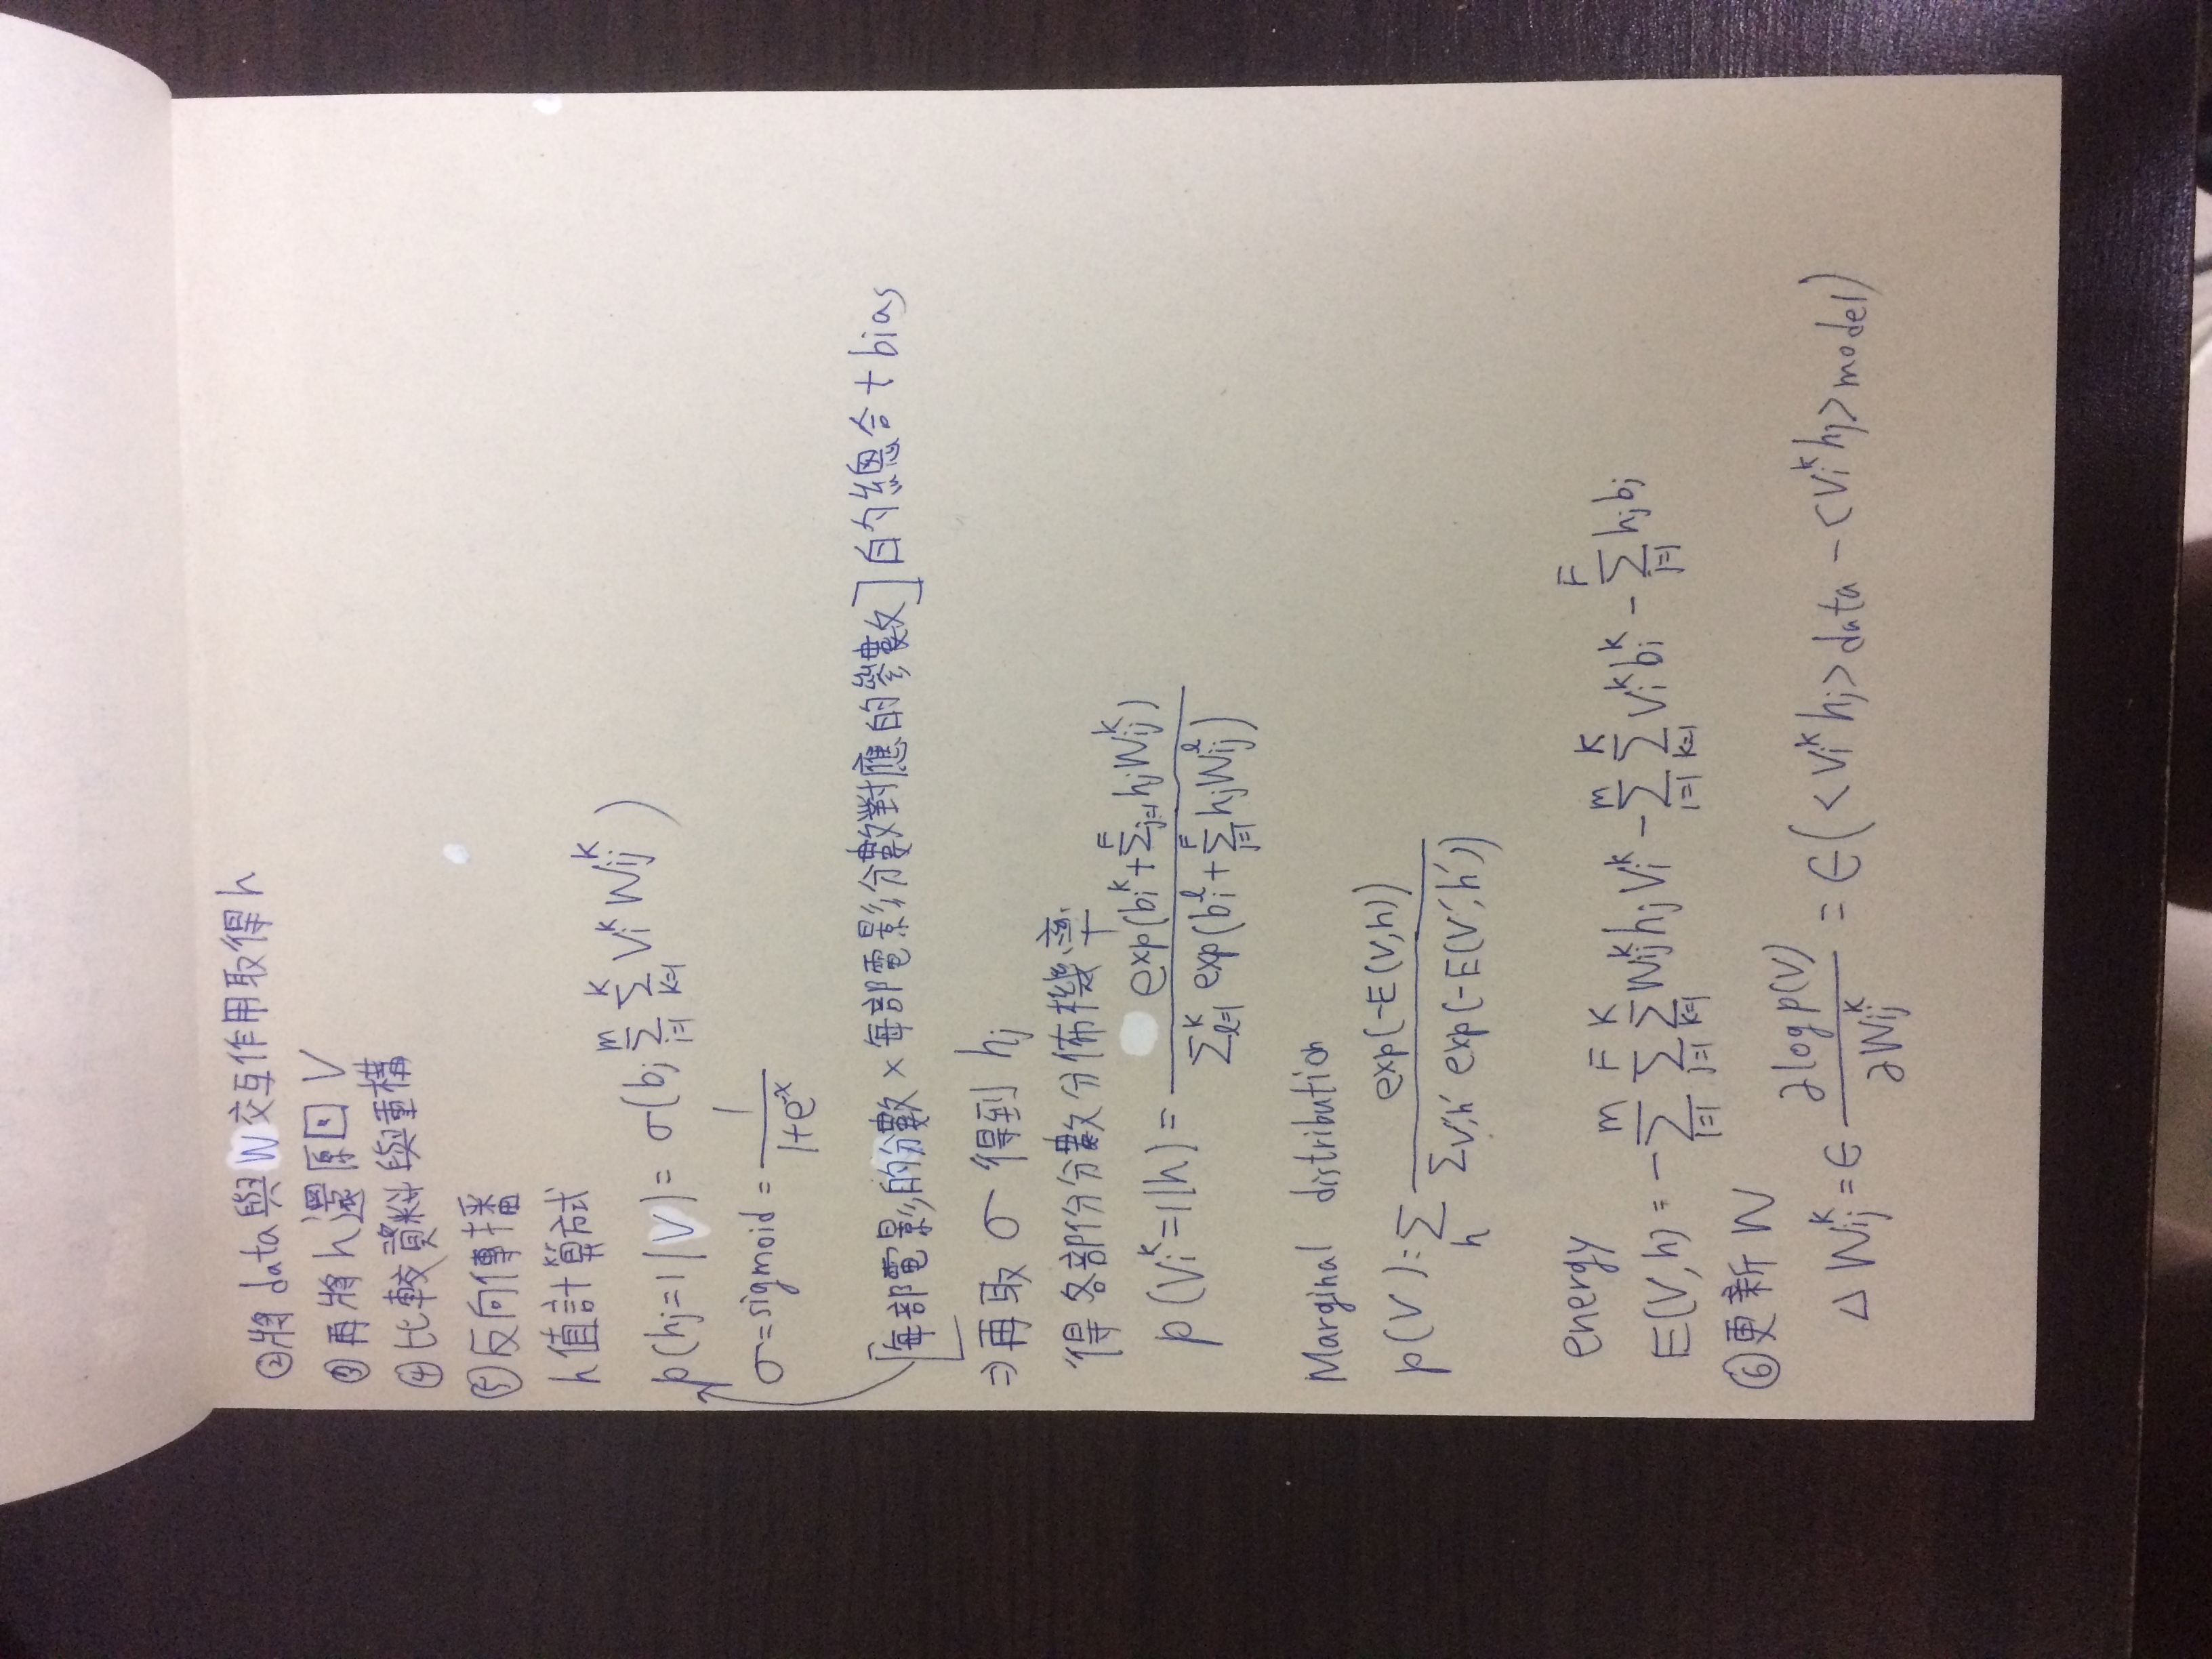 ②將 data 與 W 交互作用取得 h
③再將 h 還原回 V
④比較資料與重構
⑤反向傳播
h值計算式
p(hj=1|V) = σ(bj Σ_{i=1}^{m} Σ_{k=1}^{K} Vi^k Wij^k)
σ=sigmoid = 1/(1+e^-x)
[每部電影的分數 × 每部電影分數對應的參數] 的總合 + bias
⇒再取 σ 得到 hj
得各部份分數分佈機率
p(Vi^k=1|h) = exp(bi^k + Σ_{j=1}^{F} hj Wij^k) / Σ_{l=1}^{K} exp(bi^l + Σ_{j=1}^{F} hj Wij^l)
Marginal distribution
p(V) = Σ_h exp(-E(V,h)) / Σ_{V',h'} exp(-E(V',h'))
energy
E(V,h) = -Σ_{i=1}^{m} Σ_{j=1}^{F} Σ_{k=1}^{K} Wij^k hj Vi^k - Σ_{i=1}^{m} Σ_{k=1}^{K} Vi^k bi^k - Σ_{j=1}^{F} hj bj
⑥更新 W
Δ Wij^k = ϵ ∂log p(V) / ∂Wij^k = ϵ(<Vi^k hj>data - <Vi^k hj>model)